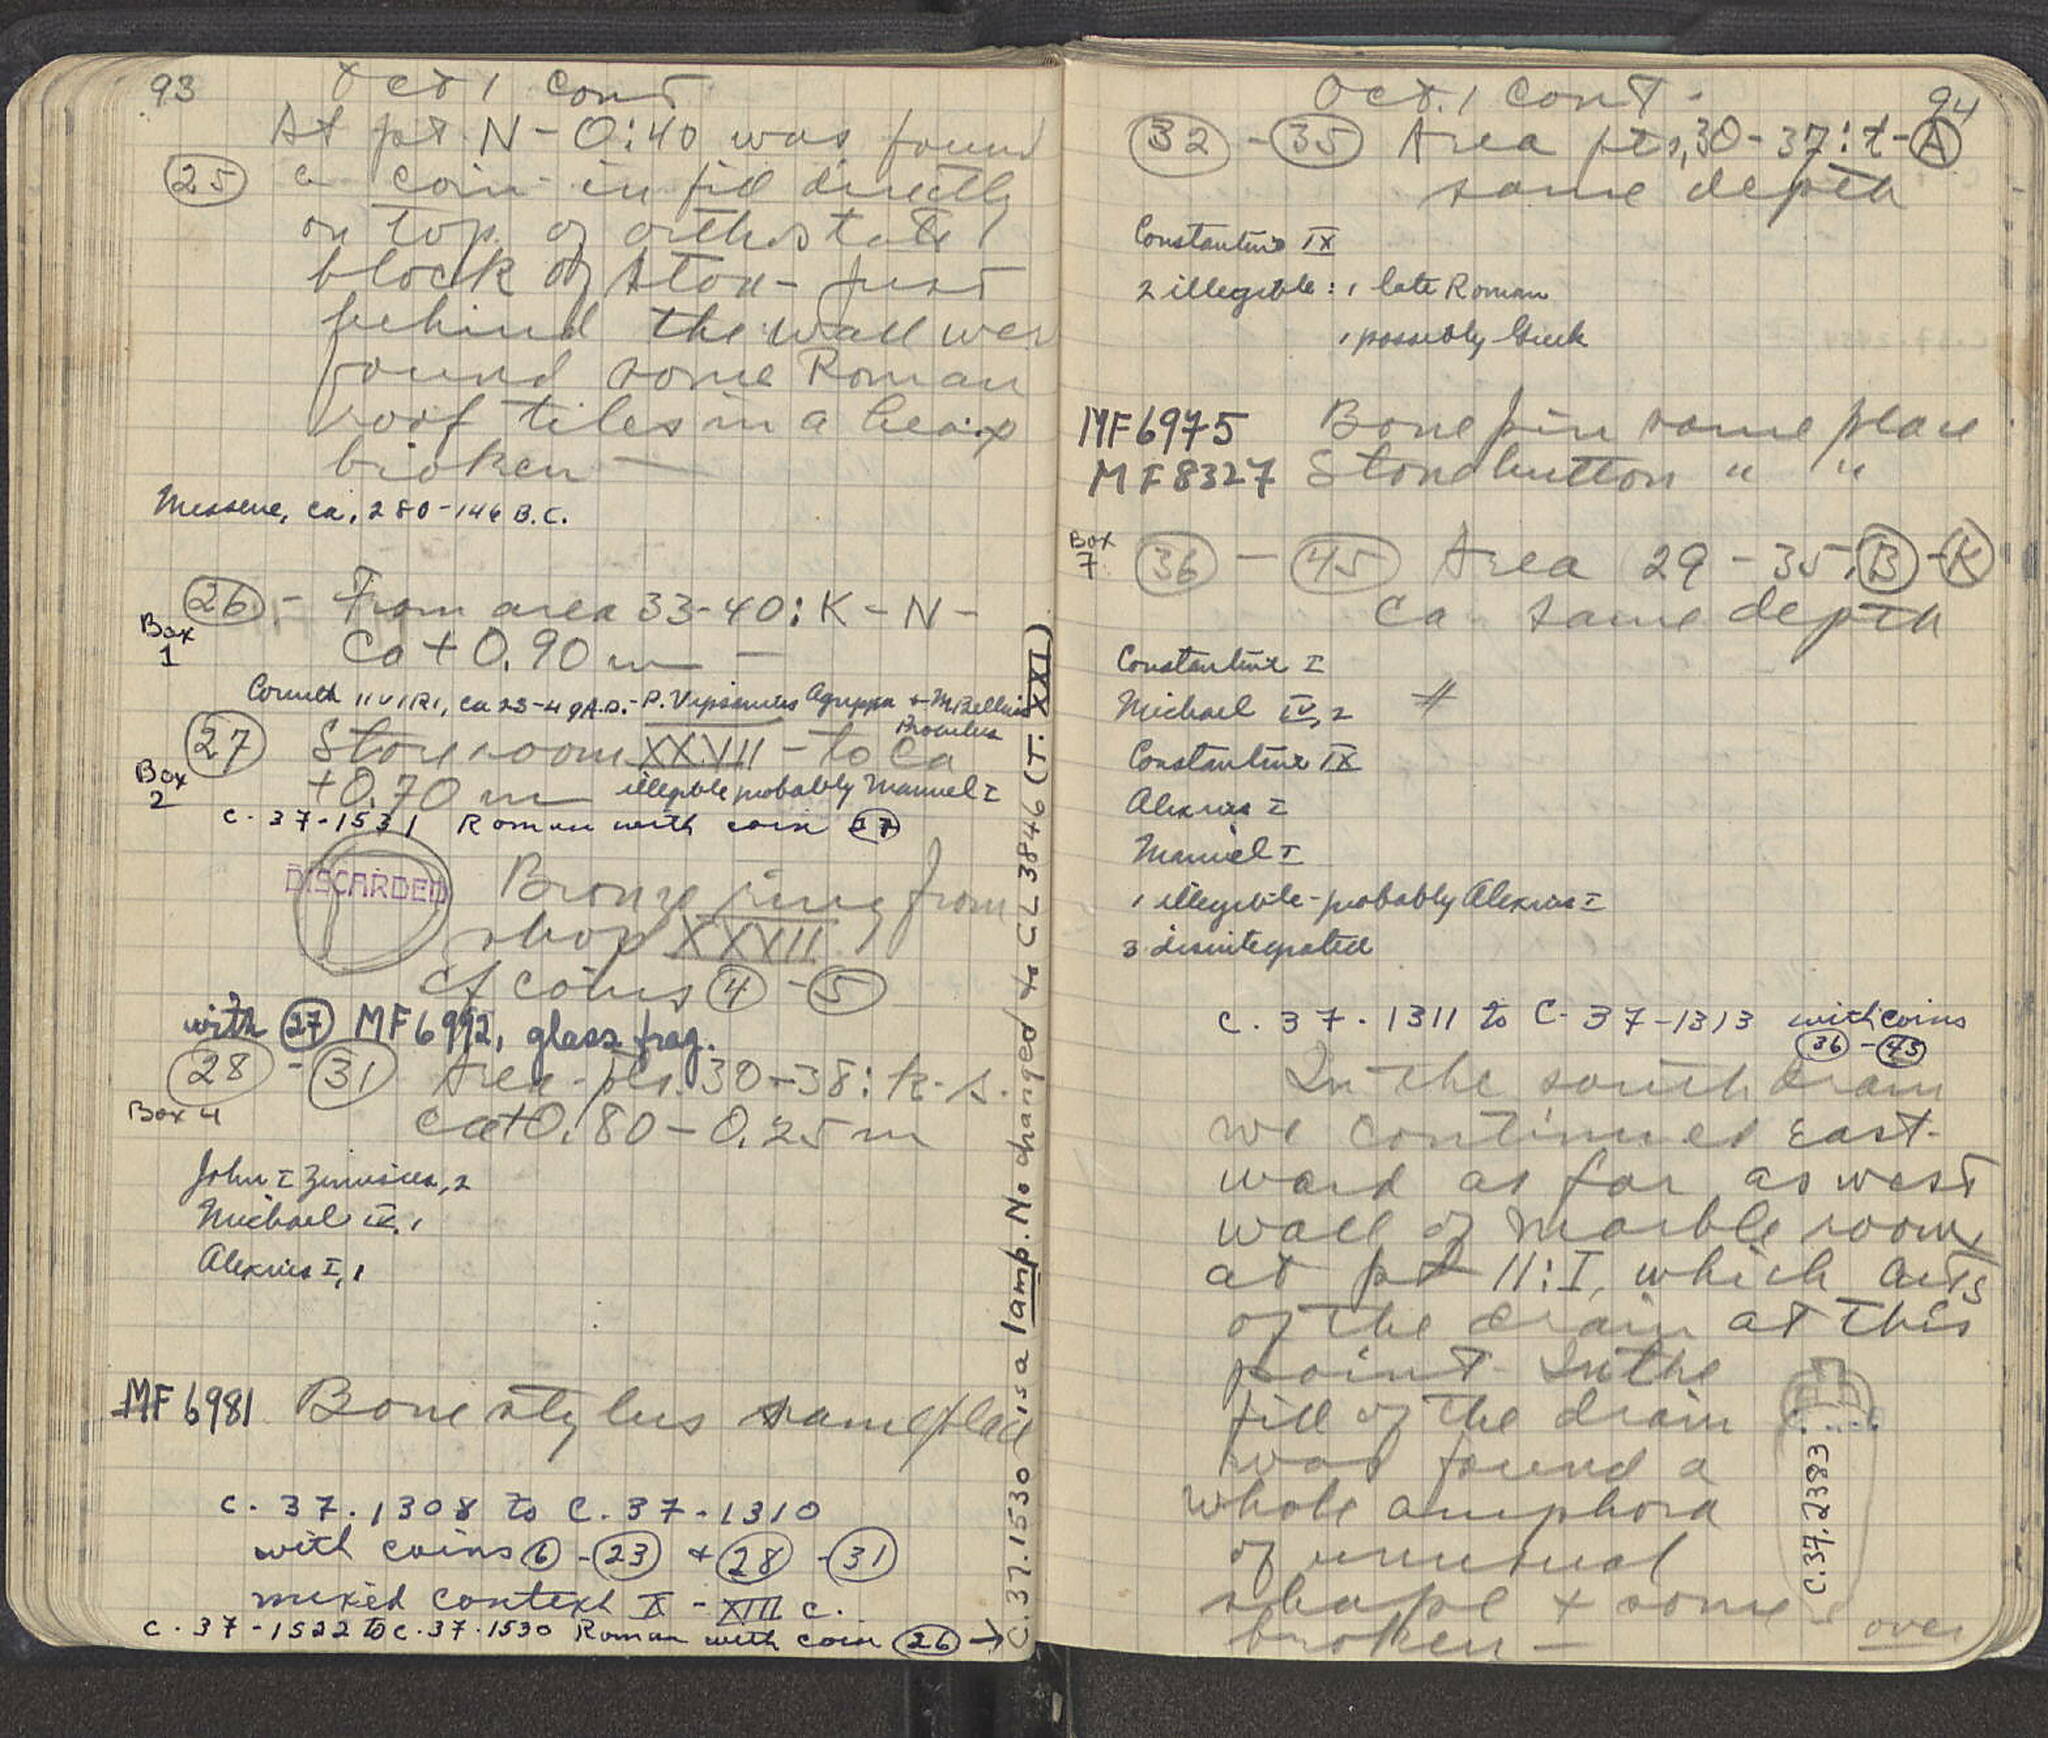 93
Oct 1 cont
At pt N-O:40 was found
25 a coin in fill directly
on top of orthostate
block of stoa - just
behind the wall wer
found some Roman
roof tiles in a heap
broken —
Messene, ca. 280-146 B.C.
26 - From area 33-40:K-N-
Box 1
Ca +0.90 m —
Corinth IIVIRI, ca 23-49 A.D. - P. Vipsanius Agrippa + M. Bellius
Proculus
27 Storeroom XXVII - to Ca
Box 2
+0.70 m illegible probably Manuel I
C. 37-1531 Roman with coin 27
DISCARDED
Bronze ring from
shop XXXII
cf coins 4 - 5
with 27 MF 6992, glass frag.
28 - 31 Area pts. 30-38: k-s.
Box 4
Ca +0.80-0.25 m
John I Zimisces, 2
Michael IV, 1
Alexius I, 1
MF 6981 Bone stylus same place
C. 37.1308 to C. 37-1310
with coins 6 - 23 + 28 - 31
mixed context X - XIII c.
C. 37-1522 to C. 37.1530 Roman with coin 26 →
C. 37.1530 is a lamp. No changed to CL 3846 (T. XXI)
Oct. 1 cont -
94
32 - 35 Area pts, 30-37: t-A
same depth
Constantine IX
2 illegible: 1 late Roman
1 possibly Greek
MF 6975 Bone pin same place
MF 8327 Stone button " "
Box 7
36 - 45 Area 29-35: B-K
Ca same depth
Constantine I
Michael IV, 2 #
Constantine IX
Alexius I
Manuel I
1 illegible - probably Alexius I
3 disintegrated
C. 37.1311 to C. 37-1313 with coins
36 - 45
In the south drain
we continued East-
ward as far as west
wall of marble room
at pt 11:I, which cuts
of the drain at this
point. In the
fill of the drain
was found a
whole amphora
of unusual
shape + some
broken —
C.37.2383
over